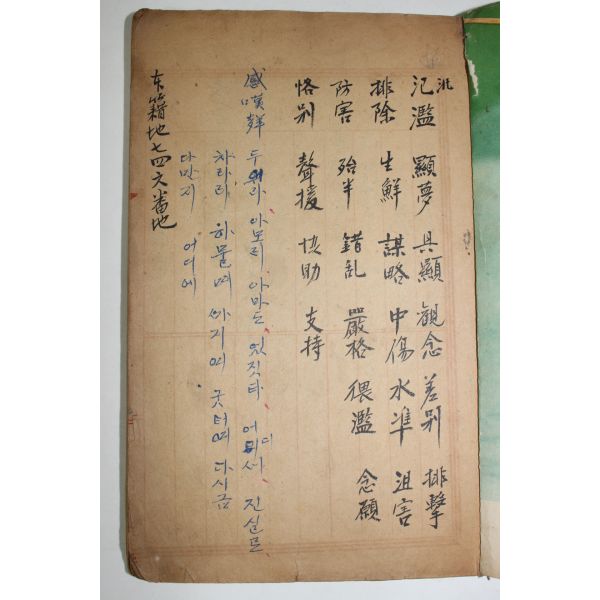 汎
氾濫 顯夢 具顯 觀念 差別 排擊
排除 生鮮 謀略 中傷 水準 沮害
防害 殆半 錯乱 嚴格 猥濫 念願
恪別 聲援 协助 支持
感嘆詞 두어라 아모리 아마도 엇짓타 어디서 진실로
차라리 하물며 하지며 굿터여 다시금
다만지 어디에
本籍地 七四六番地